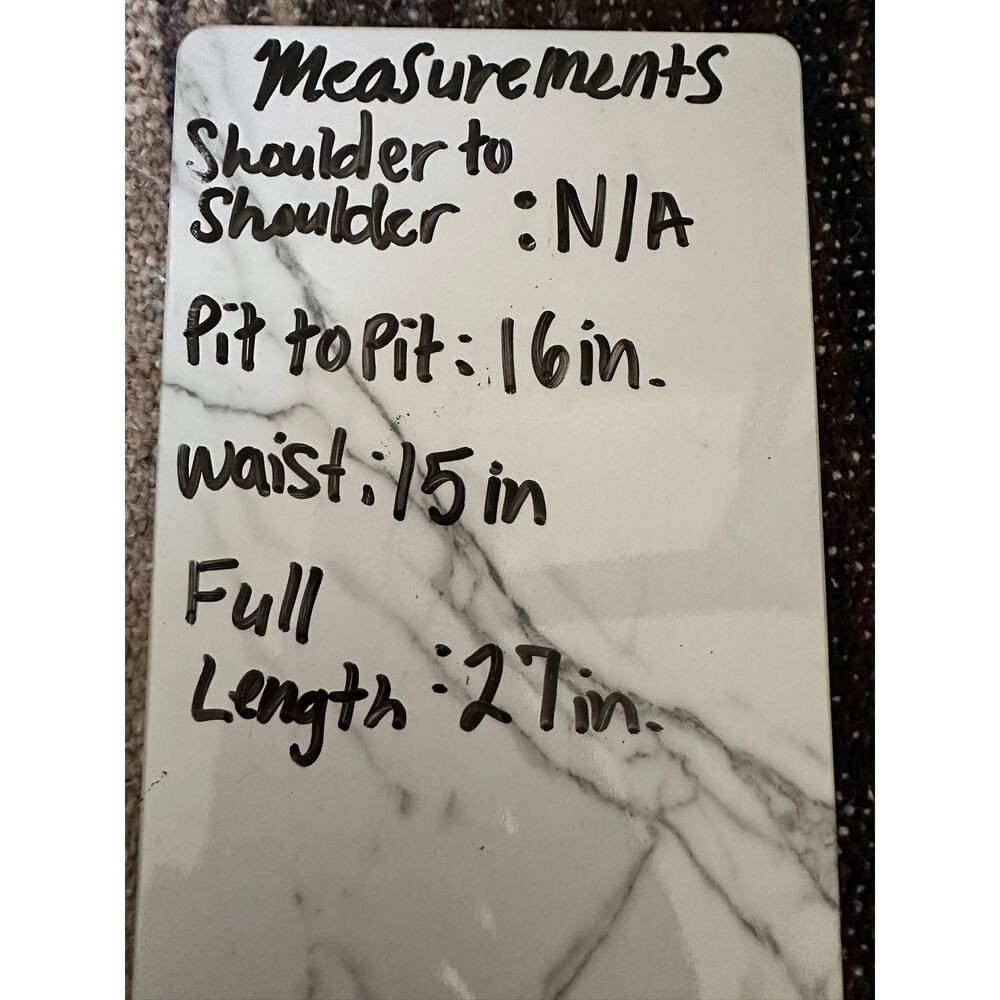 Measurements
Shoulder to
Shoulder : N/A
Pit to Pit: 16 in.
waist: 15 in
Full
Length : 27 in.